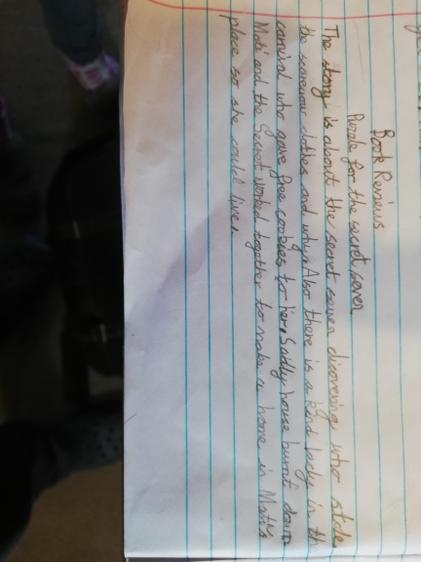 Book Reviews
Puzzle for the secret seven
The story is about the secret seven dicovering who stole
the scarecrow clothes and when Also there is a kind lady in th
carnival who gave free cookies to her. Sadly house burnt down
and the Secret worked together to make a home in
place so she could live.